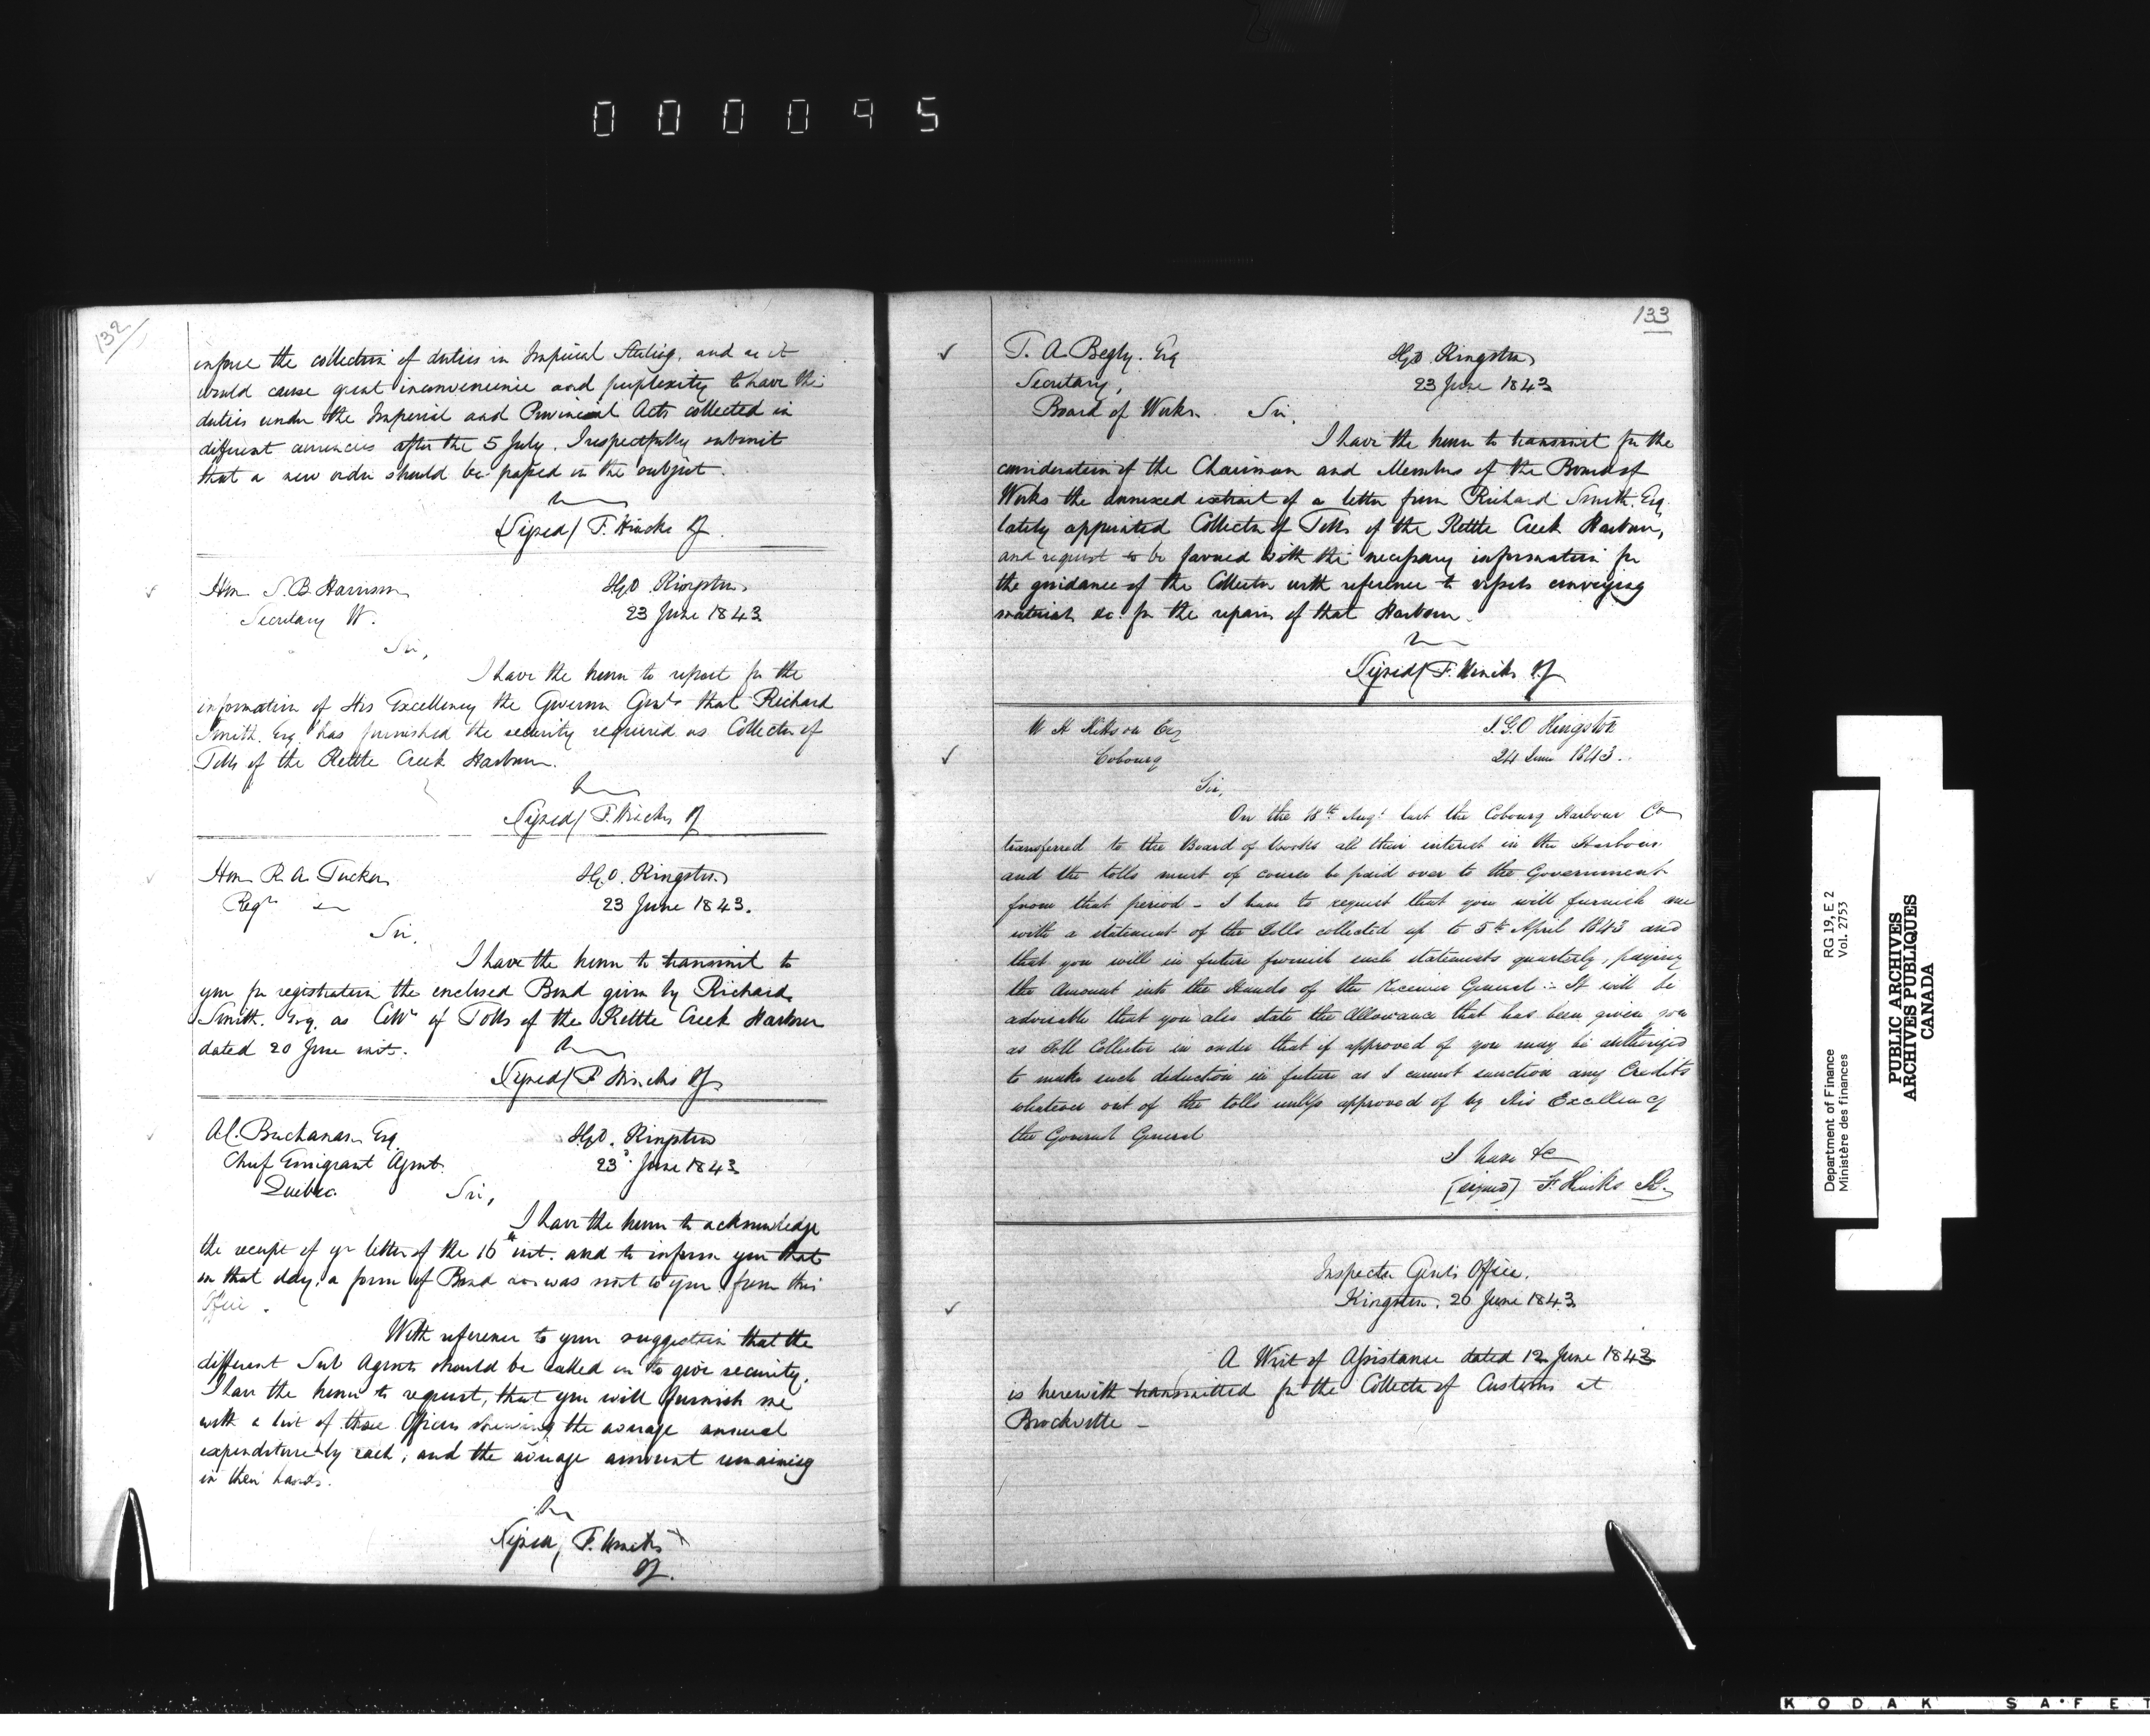 000095
132
enforce the collection of duties in Imperial Sterling, and as it
would cause great inconvenience and perplexity to have the
duties under the Imperial and Provincial Acts collected in
different currencies after the 5 July. I respectfully submit
that a new order should be passed on the subject.
Signed/ F. Hincks
Hon S. B. Harrison
Secretary W.
IGO Kingston
23 June 1843
Sir,
I have the honor to report for the
information of His Excellency the Governor Genl. that Richard
Smith Esq has furnished the security required as Collector of
Tolls of the Kettle Creek Harbour.
Signed/ F. Hincks
Hon R. A. Tucker
Regr
IGO. Kingston
23 June 1843.
Sir,
I have the honor to transmit to
you for registration the enclosed Bond given by Richard
Smith. Esq. as Collr of Tolls of the Kettle Creek Harbour
dated 20 June inst.
Signed/ F Hincks
A.C. Buchanan Esq
Chief Emigrant Agent
Quebec
IGO. Kingston
23d June 1843
Sir,
I have the honor to acknowledge
the receipt of yr letter of the 16th inst. and to inform you that
on that day, a form of Bond was sent to you from this
Office.
With reference to your suggestion that the
different Sub Agents should be called on to give security,
I have the honor to request, that you will furnish me
with a list of those Officers shewing the average annual
expenditure by each, and the average amount remaining
in their hands.
Signed, F. Hincks
133
T. A. Begly. Esq
Secretary,
Board of Works.
IGO. Kingston
23 June 1843
Sir,
I have the honor to transmit for the
consideration of the Chairman and Members of the Board of
Works the annexed extract of a letter from Richard Smith. Esq
lately appointed Collector of Tolls of the Kettle Creek Harbour,
and request to be favored with the necessary information for
the guidance of the Collector with reference to vessels conveying
materials &c. for the repairs of that Harbour.
Signed/ F. Hincks
W H Kittson Esq
Cobourg
I.G.O Kingston
24 June 1843.
Sir,
On the 18th Augt last the Cobourg Harbour Co
transferred to the Board of Works all their interest in the Harbour
and the tolls must of course be paid over to the Government
from that period - I have to request that you will furnish me
with a statement of the Tolls collected up to 5th April 1843 and
that you will in future furnish such statements quarterly, paying
the Amount into the Hands of the Receiver General :- It will be
advisable that you also state the Allowance that has been given you
as Toll Collector in order that if approved of you may be authorized
to make such deduction in future as I cannot sanction any Credits
whatever out of the tolls unless approved of by His Excellency
the Governor General
I have &c
[signed] F Hincks
Inspector Genl's Office.
Kingston. 26 June 1843
A Writ of Assistance dated 12 June 1843
is herewith transmitted for the Collector of Customs at
Brockville -
Department of Finance
Ministère des finances
RG 19, E 2
Vol. 2753
PUBLIC ARCHIVES
ARCHIVES PUBLIQUES
CANADA
KODAK SAFET